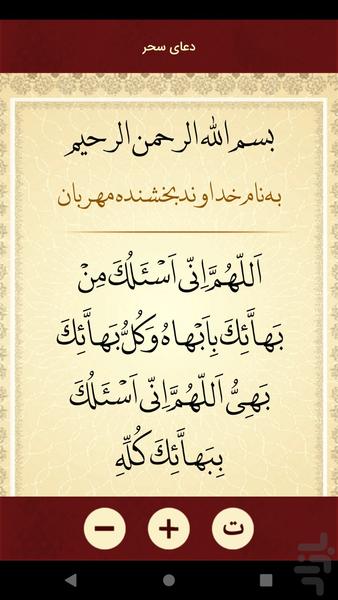 دعای سحر
بسم الله الرحمن الرحیم
به نام خداوند بخشنده مهربان
اَللّهُمَّ اِنّی اَسْئَلُكَ مِنْ
بَهاَّئِكَ بِاَبْهاهُ وَكُلُّ بَهاَّئِكَ
بَهِیُّ اَللّهُمَّ اِنّی اَسْئَلُكَ
بِبَهاَّئِكَ كُلِّهِ
ت
بازار